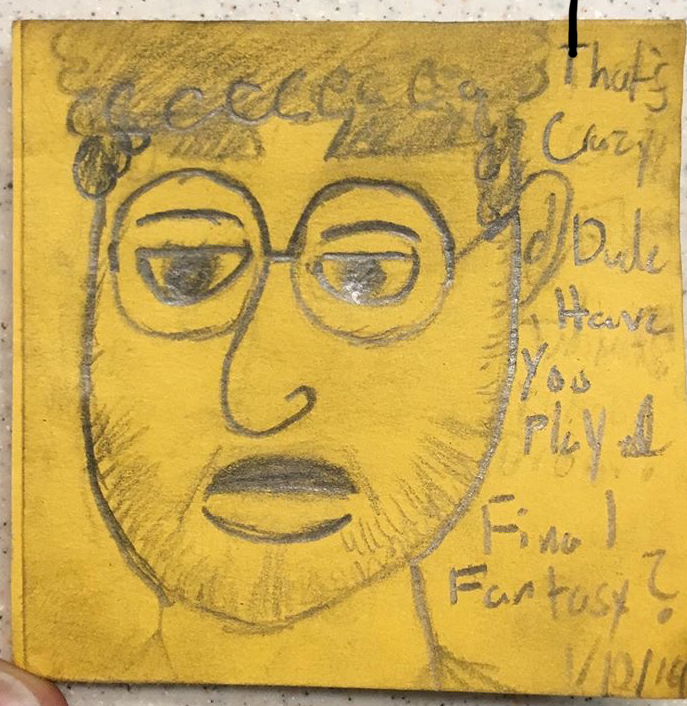 That's
Crazy
Dude
Have
You
Play
Final
Fantasy?